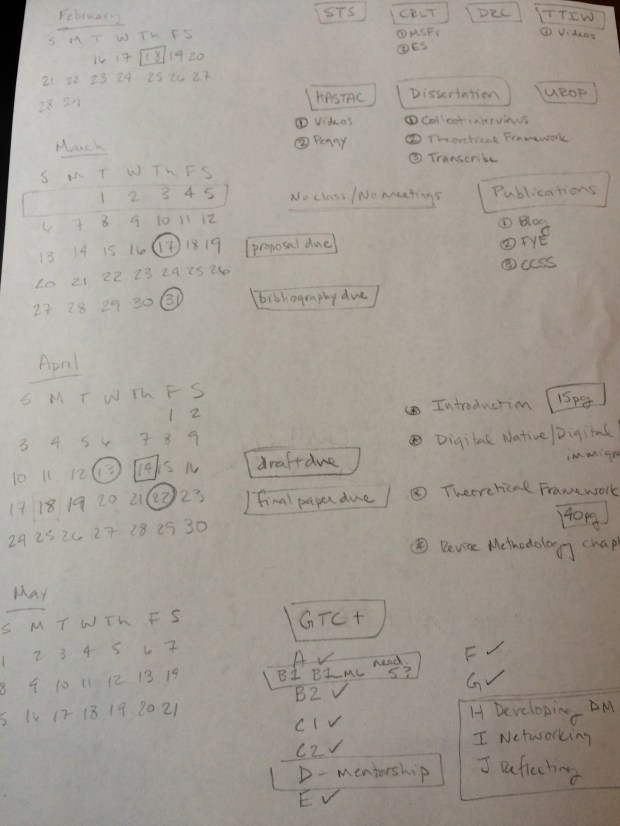 February
S M T W Th F S
16 17 18 19 20
21 22 23 24 25 26 27
28 29
STS
CRLT
① MSFs
② ES
DRC
TTIW
① Videos
HASTAC
① Videos
② Peggy
Dissertation
① Collect interviews
② Theoretical Framework
③ Transcribe
UROP
March
S M T W Th F S
1 2 3 4 5
6 7 8 9 10 11 12
13 14 15 16 17 18 19
20 21 22 23 24 25 26
27 28 29 30 31
No class/No meetings
proposal due
bibliography due
Publications
① Blog
② FYE
③ CCSS
April
S M T W Th F S
1 2
3 4 5 6 7 8 9
10 11 12 13 14 15 16
17 18 19 20 21 22 23
24 25 26 27 28 29 30
draft due
final paper due
Introduction 15pg
Digital Native/Digital
immigr
Theoretical Framework
40pg
Revise Methodology chap
May
S M T W Th F S
1 2 3 4 5 6 7
8 9 10 11 12 13 14
5 16 17 18 19 20 21
GTC+
A ✓
B1 B1 need
5?
B2 ✓
C1 ✓
C2 ✓
D - mentorship
E ✓
F ✓
G ✓
H Developing DM
I Networking
J Reflecting